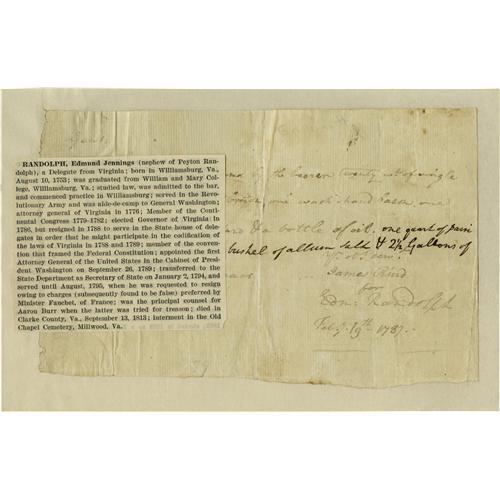 RANDOLPH, Edmund Jennings (nephew of Peyton Ran-
dolph), a Delegate from Virginia; born in Williamsburg, Va.,
August 10, 1753; was graduated from William and Mary Col-
lege, Williamsburg, Va.; studied law, was admitted to the bar,
and commenced practice in Williamsburg; served in the Revo-
lutionary Army and was aide-de-camp to General Washington;
attorney general of Virginia in 1776; Member of the Conti-
nental Congress 1779-1782; elected Governor of Virginia in
1786, but resigned in 1788 to serve in the State house of dele-
gates in order that he might participate in the codification of
the laws of Virginia of 1788 and 1789; member of the conven-
tion that framed the Federal Constitution; appointed the first
Attorney General of the United States in the Cabinet of Presi-
dent Washington on September 26, 1789; transferred to the
State Department as Secretary of State on January 2, 1794, and
served until August, 1795, when he was requested to resign
owing to charges (subsequently found to be false) preferred by
Minister Fauchet, of France; was the principal counsel for
Aaron Burr when the latter was tried for treason; died in
Clarke County, Va., September 13, 1813; interment in the Old
Chapel Cemetery, Millwood, Va.
by the bearer twenty of single
one wash hand basin one
& a bottle of oil. one quart of
bushel of allum salt & 2½ Gallons of
James
for
Edm: Randolph
Feby. 19th 1787.